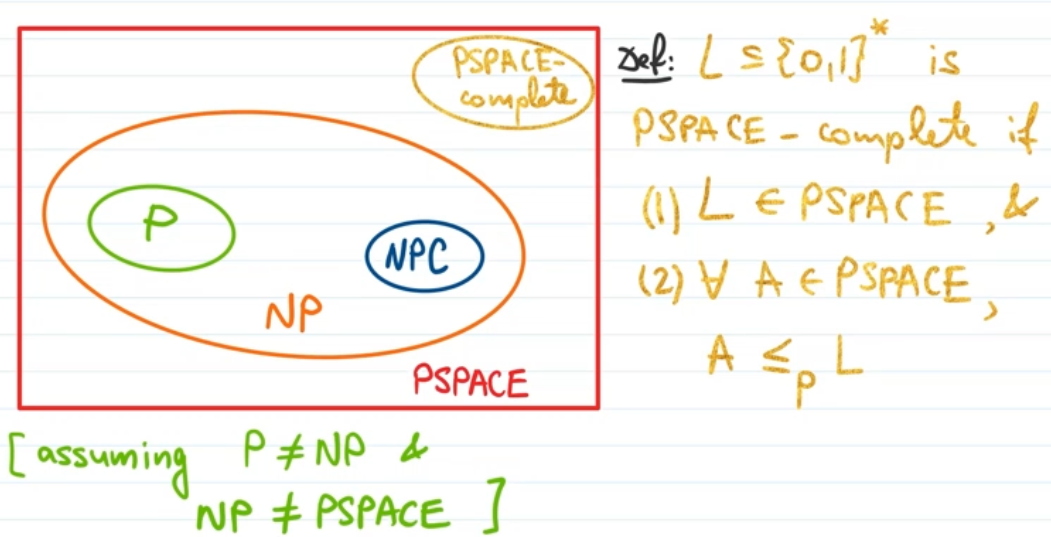 PSPACE-
complete
P
NPC
NP
PSPACE
[assuming P ≠ NP &
NP ≠ PSPACE ]
Def: L ⊆ {0,1}* is
PSPACE - complete if
(1) L ∈ PSPACE, &
(2) ∀ A ∈ PSPACE,
A ≤p L